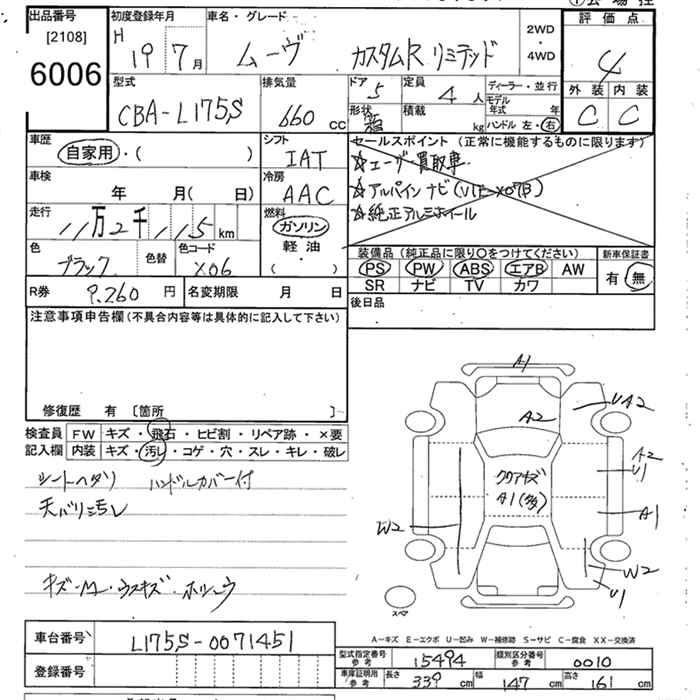 出品番号
[2108]
6006
初度登録年月
H 19 7月
車名・グレード
ムーヴ カスタムR リミテッド
2WD
・
4WD
評価点
4
外装 内装
C C
型式
CBA-L175S
排気量
660 CC
ドア 5
定員 4人
形状
積載 kg
ディーラー・並行
モデル年式 年
ハンドル 左・右
車歴
自家用・( )
シフト
IAT
セールスポイント (正常に機能するものに限ります)
☆ユーザー買取車
☆アルパインナビ(VIE-X07B)
☆純正アルミホイール
車検
年 月( 日)
冷房
AAC
走行
11万2千115km
燃料
ガソリン
軽油
( )
色
ブラック
色替
色コード
X06
装備品 (純正品に限り〇をつけてください)
PS PW ABS エアB AW
SR ナビ TV カワ
新車保証書
有・無
R券 9,260円
名変期限 月 日
後日品
注意事項申告欄(不具合内容等は具体的に記入して下さい)
修復歴 有 〔箇所 〕
検査員 FW キズ・飛石・ヒビ割・リペア跡・×要
記入欄 内装 キズ・汚レ・コゲ・穴・スレ・キレ・破レ
シートヘタリ ハンドルカバー付
天バリ汚レ
キズ-M・ウスキズ・ホリュウ
A1
UA2
A2
A2
U1
クリアキズ
A1(多)
A1
W2
W2
U1
スペア
A-キズ E-エクボ U-凹み W-補修跡 S-サビ C-腐食 XX-交換済
車台番号 L175S-0071451
登録番号
型式指定番号 参考 15494
類別区分番号 参考 0010
車庫証明用 参考 長さ 339cm 幅 147cm 高さ 161cm